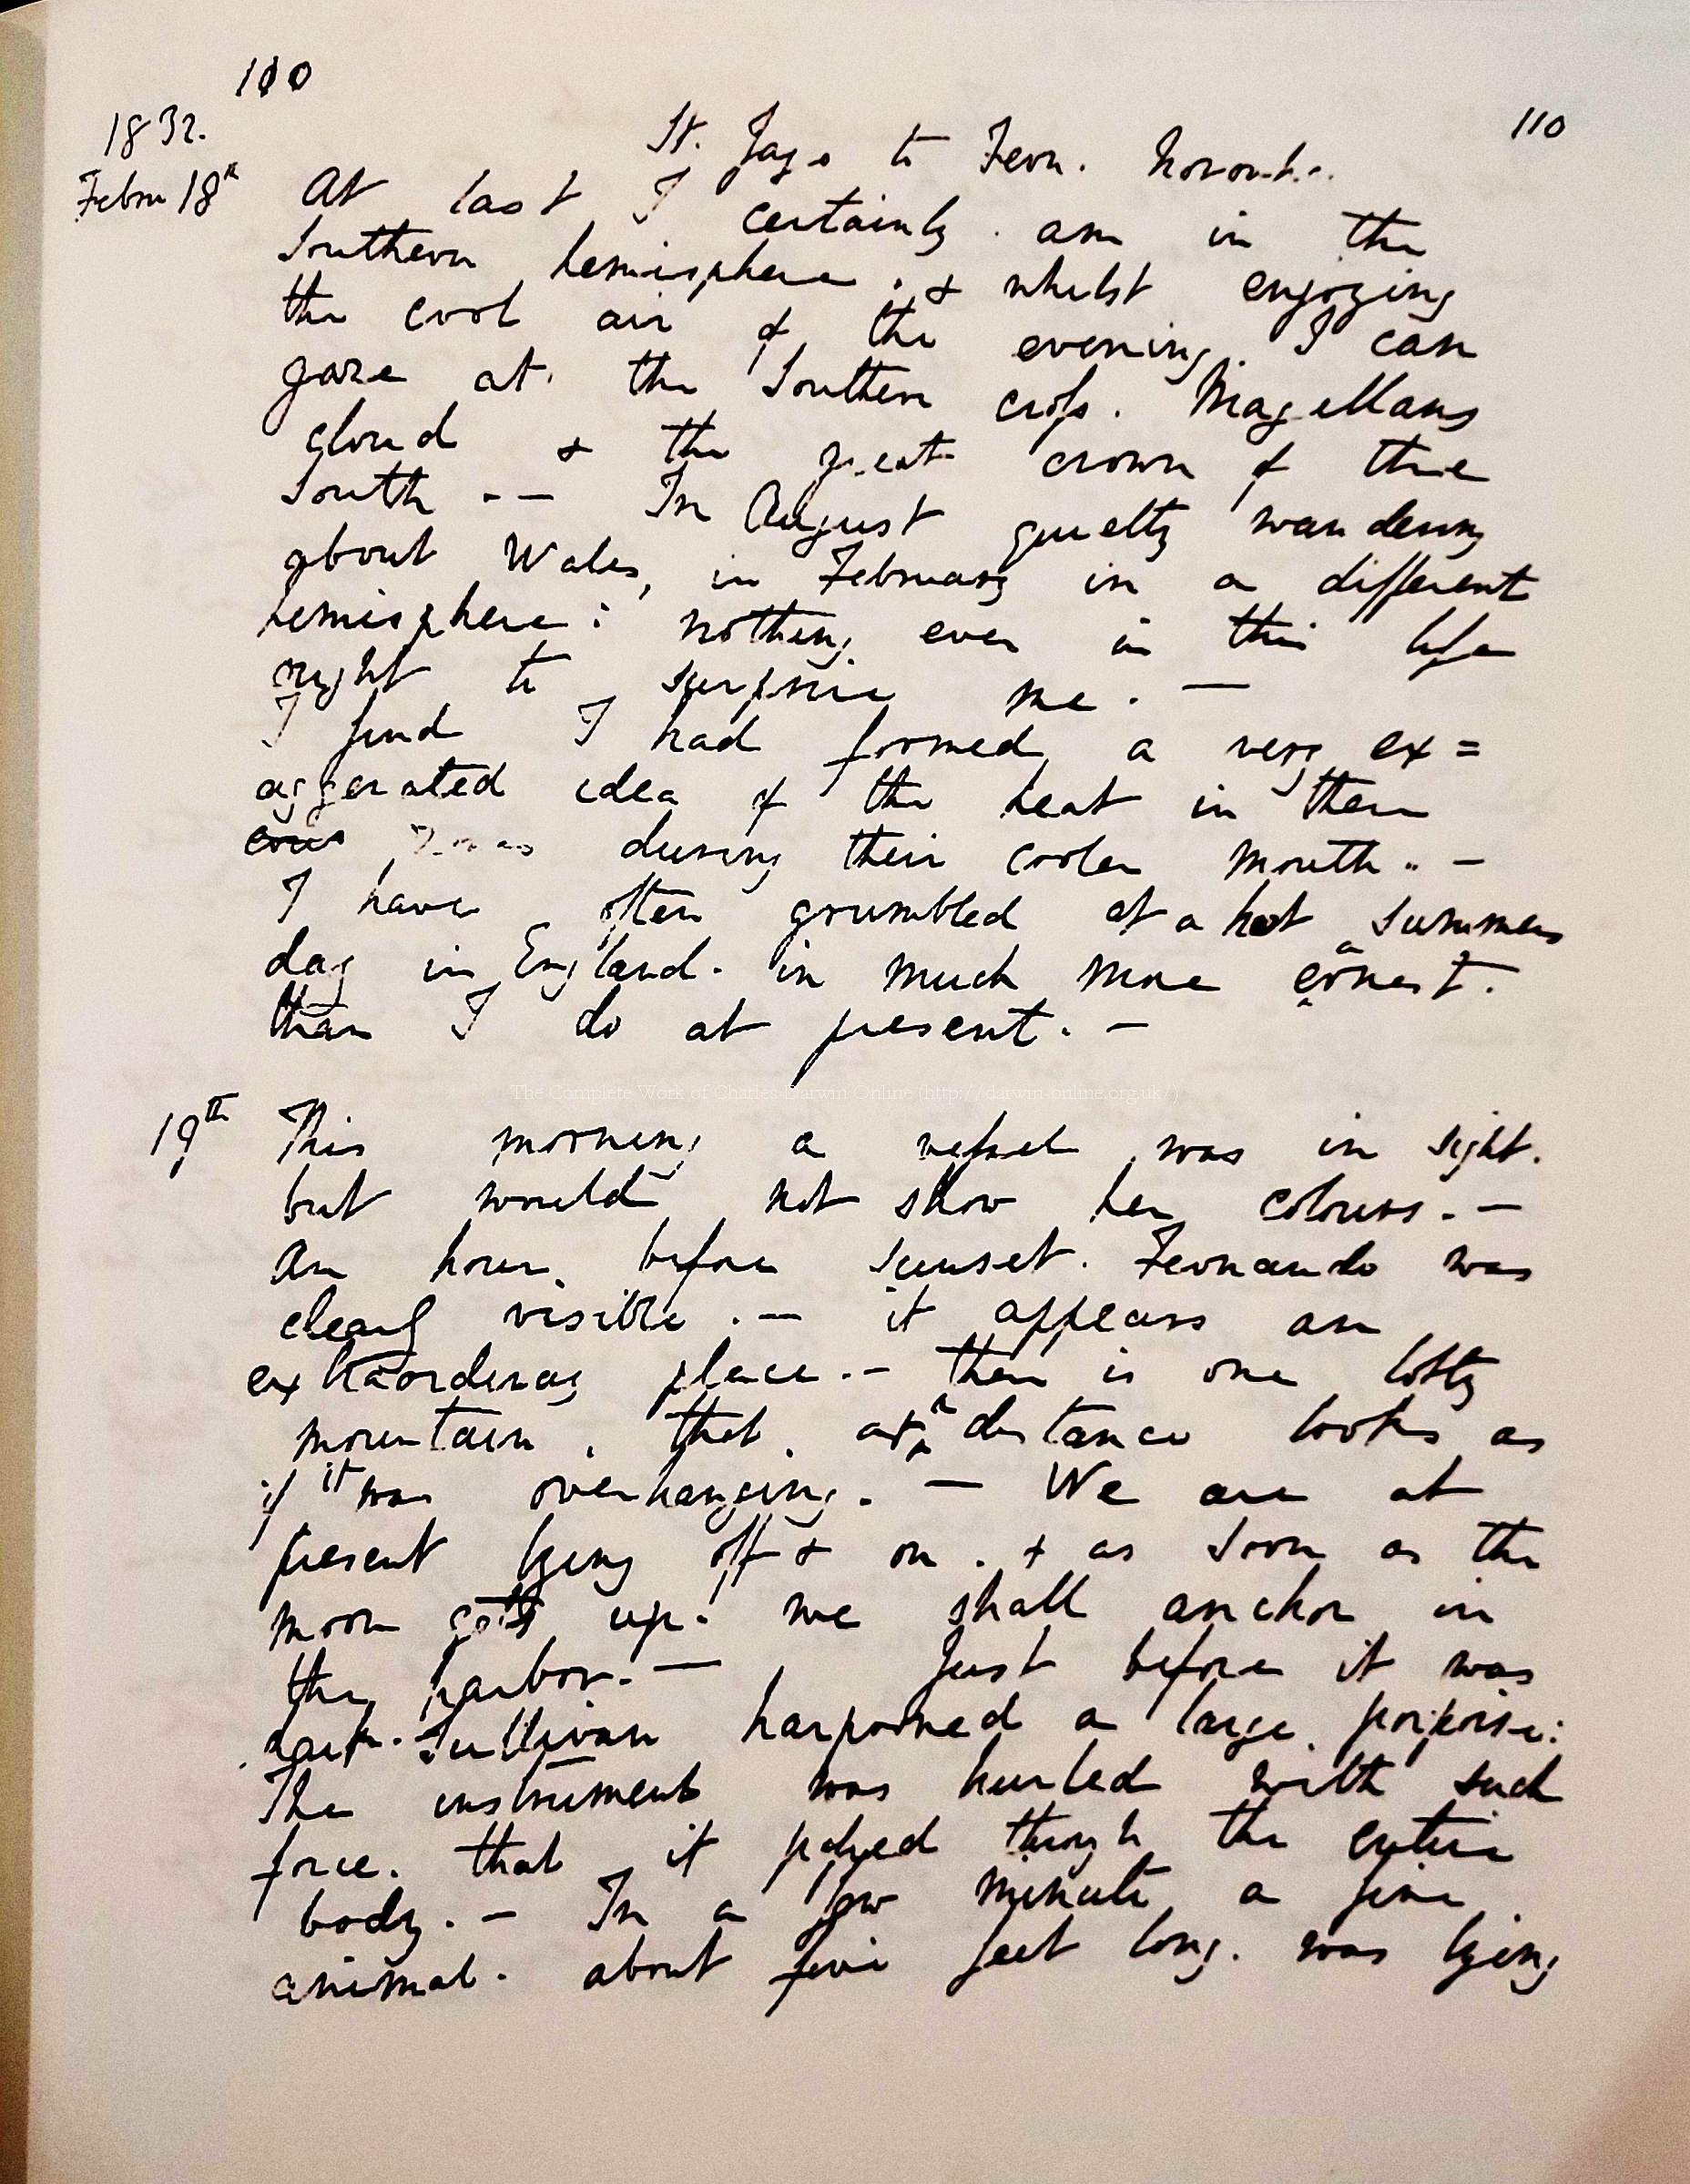 100
110
1832.
St. Jago to Fern. Noronh..
Febru 18th At last I certainly am in the
Southern hemisphere, & whilst enjoying
the cool air of the evening, I can
gaze at the Southern cross. Magellans
cloud & the great crown of the
South. — In August quietly wandering
about Wales, in February in a different
hemisphere: nothing ever in this life
ought to surprise me. —
I find I had formed a very ex=
aggerated idea of the heat in these
during their cooler month.. —
I have often grumbled at a hot summers
day in England. in much more earnest.
than I do at present. —
The Complete Work of Charles Darwin Online (http://darwin-online.org.uk/)
19th This morning a vessel was in sight.
but would not show her colours. —
An hour before sunset. Fernando was
clearly visible. — it appears an
extraordinary place. — there is one lofty
mountain, that, at a distance looks as
if it was overhanging. — We are at
present lying off & on. & as soon as the
moon gets up. we shall anchor in
the harbor. — Just before it was
dark. Sullivan harpooned a large porpoise:
The instrument was hurled with such
force. that it passed through the entire
body. — In a few minute a fine
animal. about five feet long. was lying